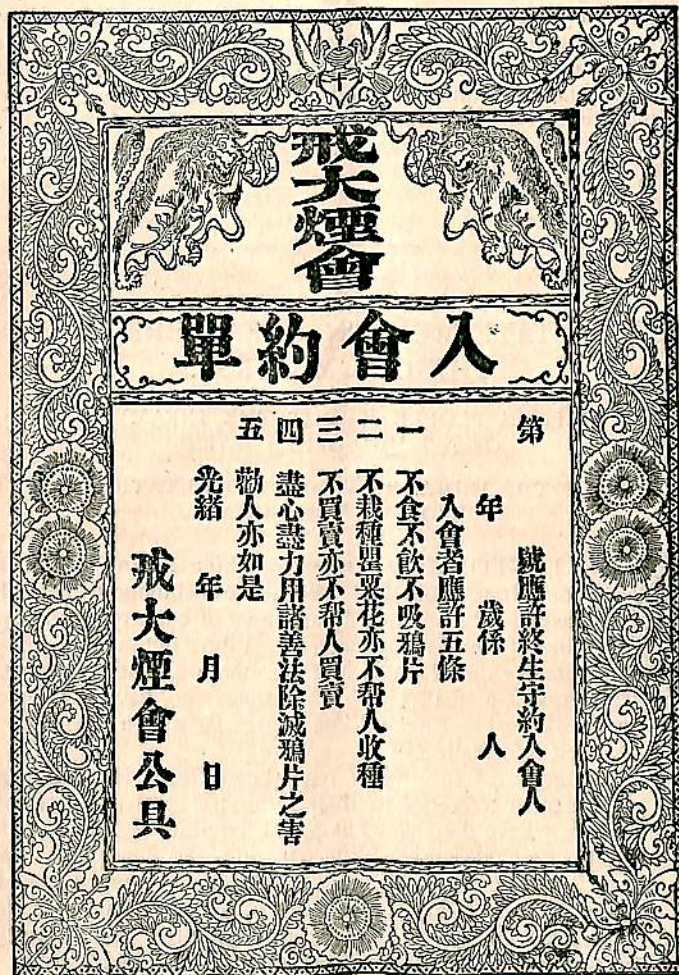 戒大煙會
入會約單
第 號應許終生守約入會人
年 歲係 人
入會者應許五條
一 不食不飲不吸鴉片
二 不栽種罌粟花亦不帮人收種
三 不買賣亦不帮人買賣
四 盡心盡力用諸善法除滅鴉片之害
五 勸人亦如是
光緒 年 月 日
戒大煙會公具